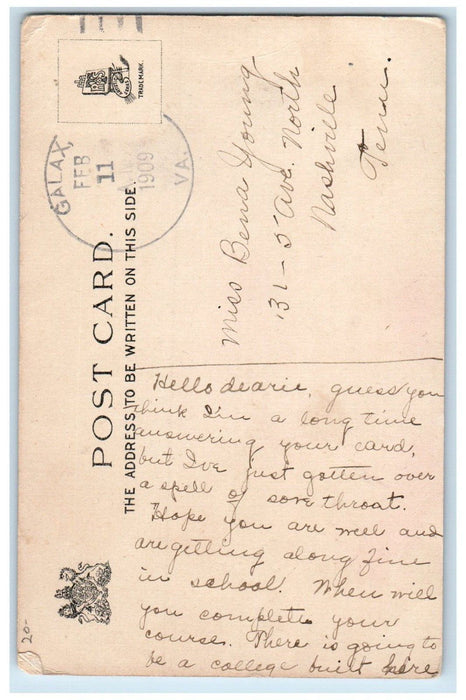 POST CARD.
THE ADDRESS TO BE WRITTEN ON THIS SIDE.
TRADEMARK.
GALAX,
FEB
11
1909
VA.
Miss Bena Young
132 - 5 Ave. North
Nashville
Tenn.
Hello dearie, guess you
think I'm a long time
answering your card,
but I've just gotten over
a spell of sore throat.
Hope you are well and
are getting along fine
in school. When will
you complete your
course. There is going to
be a college built here
20-